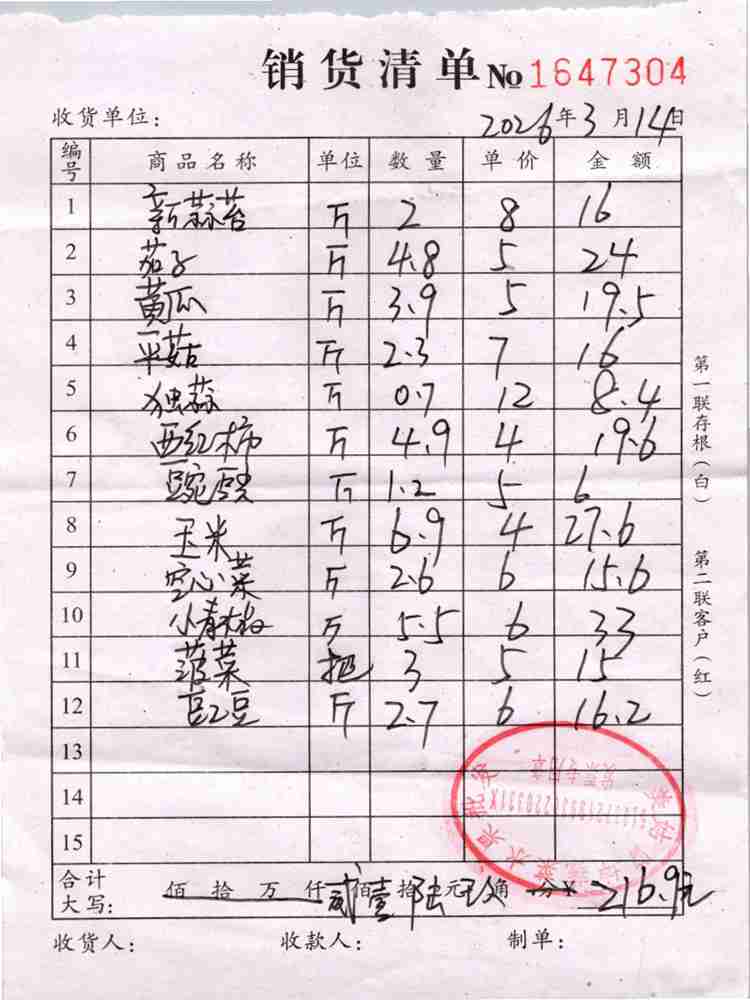 销货清单 No 1647304
收货单位： 2026年3月14日
编号 商品名称 单位 数量 单价 金额
1 新蒜苔 斤 2 8 16
2 茄子 斤 4.8 5 24
3 黄瓜 斤 3.9 5 19.5
4 平菇 斤 2.3 7 16
5 独蒜 斤 0.7 12 8.4
6 西红柿 斤 4.9 4 19.6
7 豌豆 斤 1.2 5 6
8 玉米 斤 6.9 4 27.6
9 空心菜 斤 2.6 6 15.6
10 小青椒 斤 5.5 6 33
11 菠菜 把 3 5 15
12 豇豆 斤 2.7 6 16.2
13
14
15
合计大写： 佰 拾 万 仟 贰佰壹拾陆元玖角 分 ¥ 216.9元
收货人： 收款人： 制单：
第一联存根（白）
第二联客户（红）
发票专用章